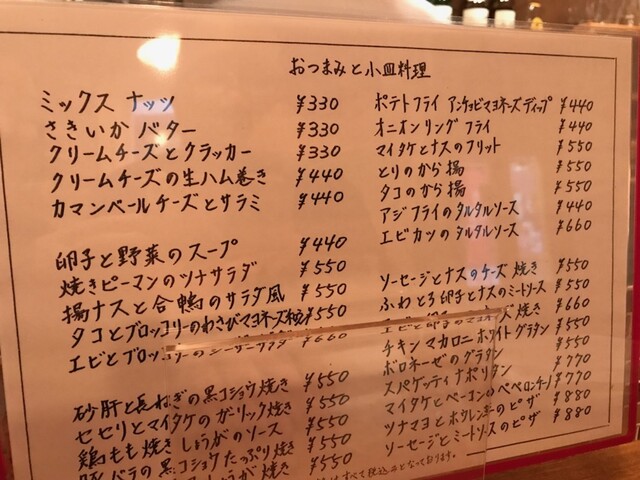 おつまみと小皿料理
ミックス ナッツ ¥330
さきいか バター ¥330
クリームチーズとクラッカー ¥330
クリームチーズの生ハム巻き ¥440
カマンベールチーズとサラミ ¥440
卵子と野菜のスープ ¥440
焼きピーマンのツナサラダ ¥550
揚ナスと合鴨のサラダ風 ¥550
タコとブロッコリーのわさびマヨネーズ和え ¥550
エビとブロッコリーのシーザーサラダ ¥660
砂肝と長ねぎの黒コショウ焼き ¥550
セセリとマイタケのガーリック焼き ¥550
鶏もも焼き しょうがのソース ¥550
豚バラの黒コショウたっぷり焼き ¥550
ポテトフライ アンチョビマヨネーズディップ ¥440
オニオンリング フライ ¥440
マイタケとナスのフリット ¥550
とりのから揚 ¥550
タコのから揚 ¥550
アジフライのタルタルソース ¥440
エビカツのタルタルソース ¥660
ソーセージとナスのチーズ 焼き ¥550
ふわとろ卵子とナスのミートソース ¥550
エビと卵子のマヨネーズ焼き ¥660
チキン マカロニ ホワイト グラタン ¥550
ボロネーゼのグラタン ¥550
スパゲッティ ナポリタン ¥770
マイタケとベーコンのペペロンチーノ ¥770
ツナマヨとホタルイカのピザ ¥880
ソーセージとミートソースのピザ ¥880
すべて税込みとなっております。